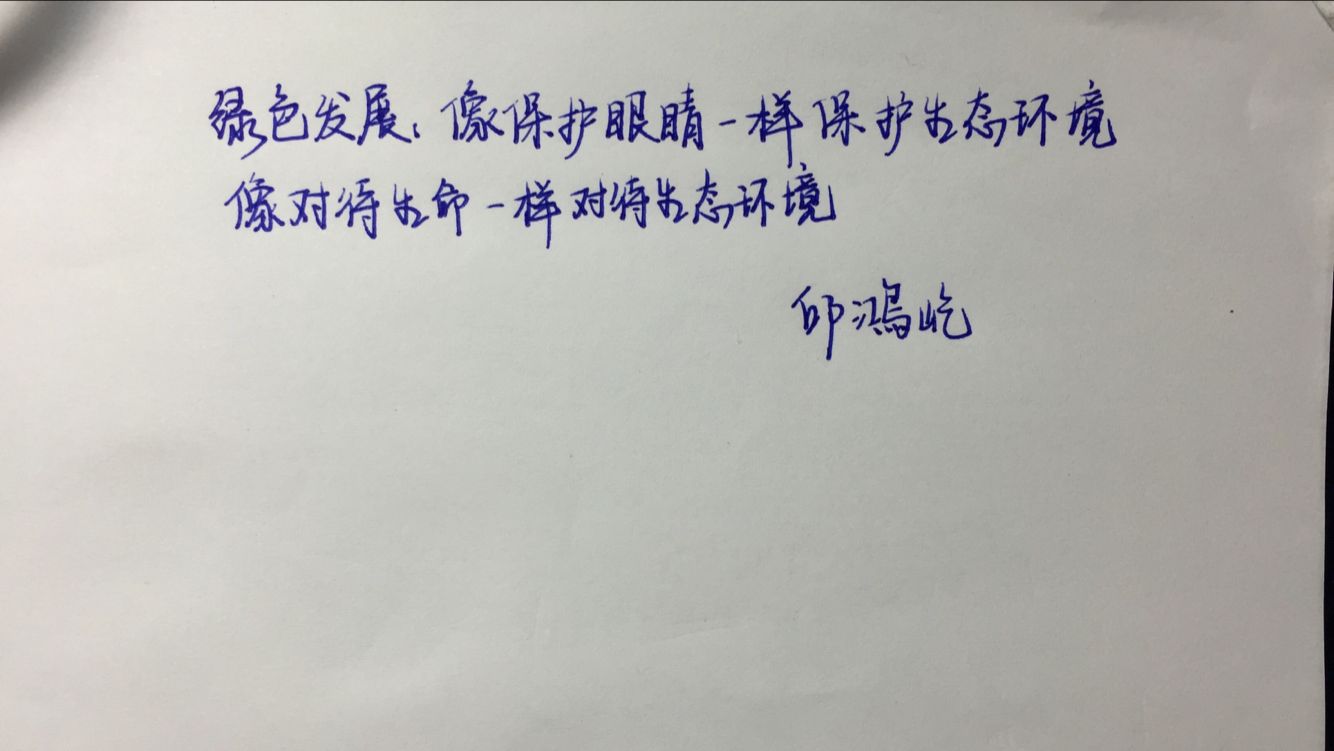 绿色发展：像保护眼睛一样保护生态环境
像对待生命一样对待生态环境
邱鸿屹